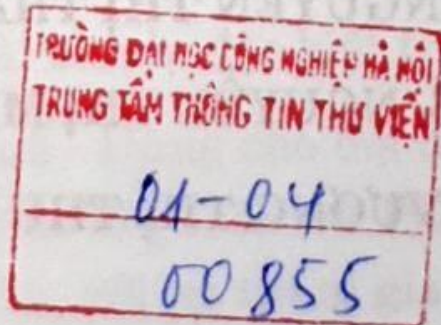 TRƯỜNG ĐẠI HỌC CÔNG NGHIỆP HÀ NỘI
TRUNG TÂM THÔNG TIN THƯ VIỆN
01-04
00855